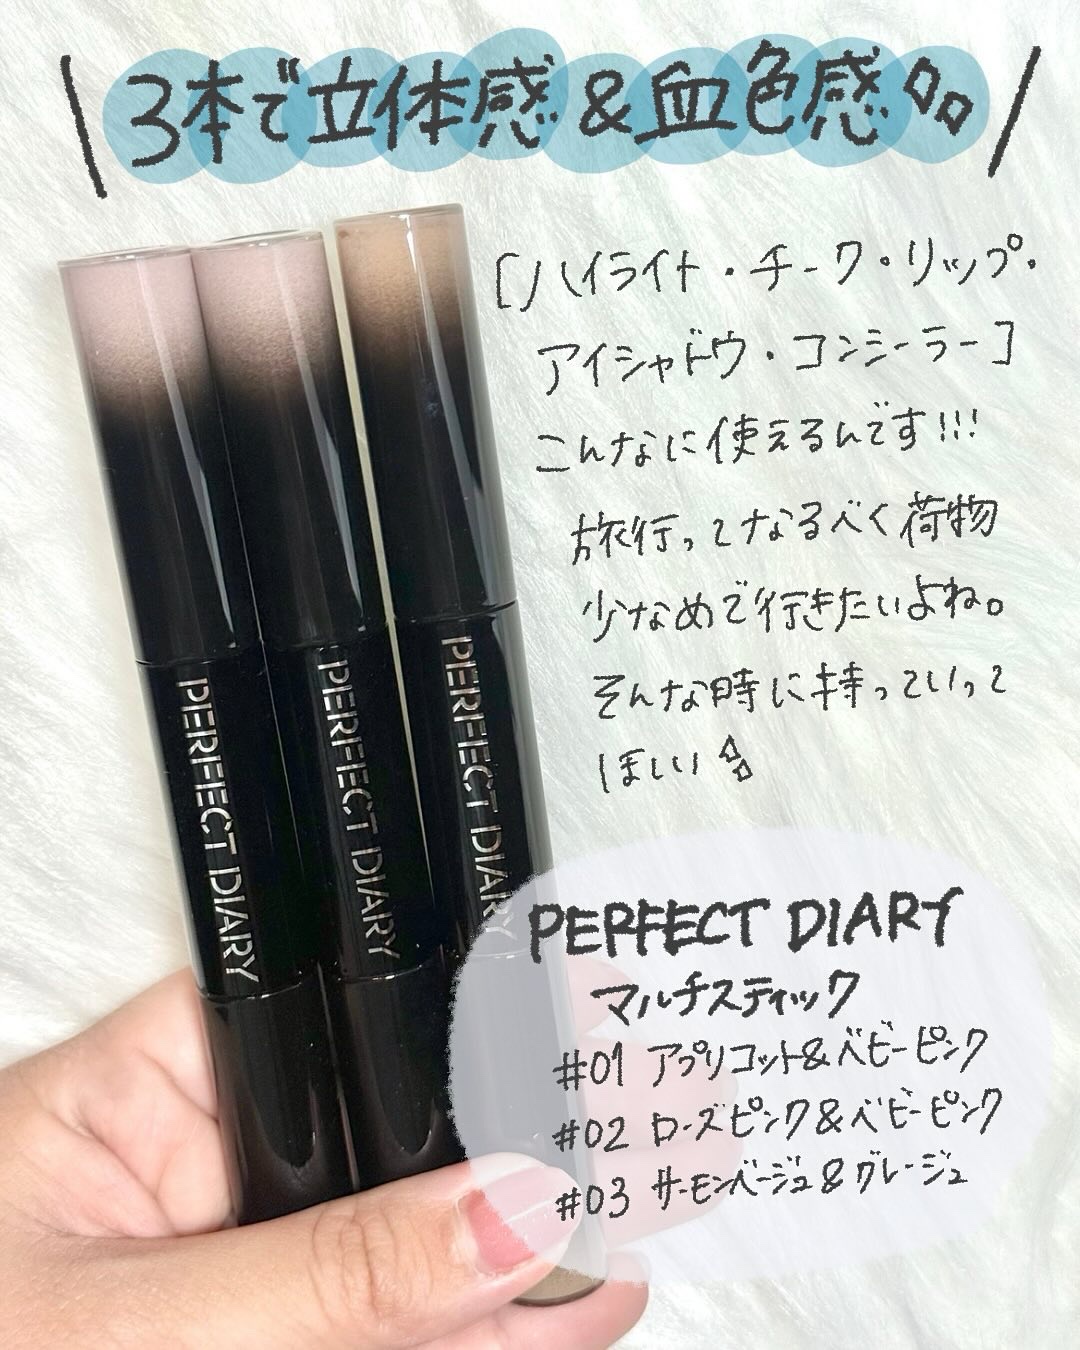 \ 3本で立体感&血色感 /
[ハイライト・チーク・リップ・
アイシャドウ・コンシーラー]
こんなに使えるんです!!!
旅行ってなるべく荷物
少なめで行きたいよね。
そんな時に持っていって
ほしい
PERFECT DIARY
PERFECT DIARY
PERFECT DIARY
PERFECT DIARY
マルチスティック
#01 アプリコット&ベビーピンク
#02 ローズピンク&ベビーピンク
#03 サーモンベージュ&グレージュ